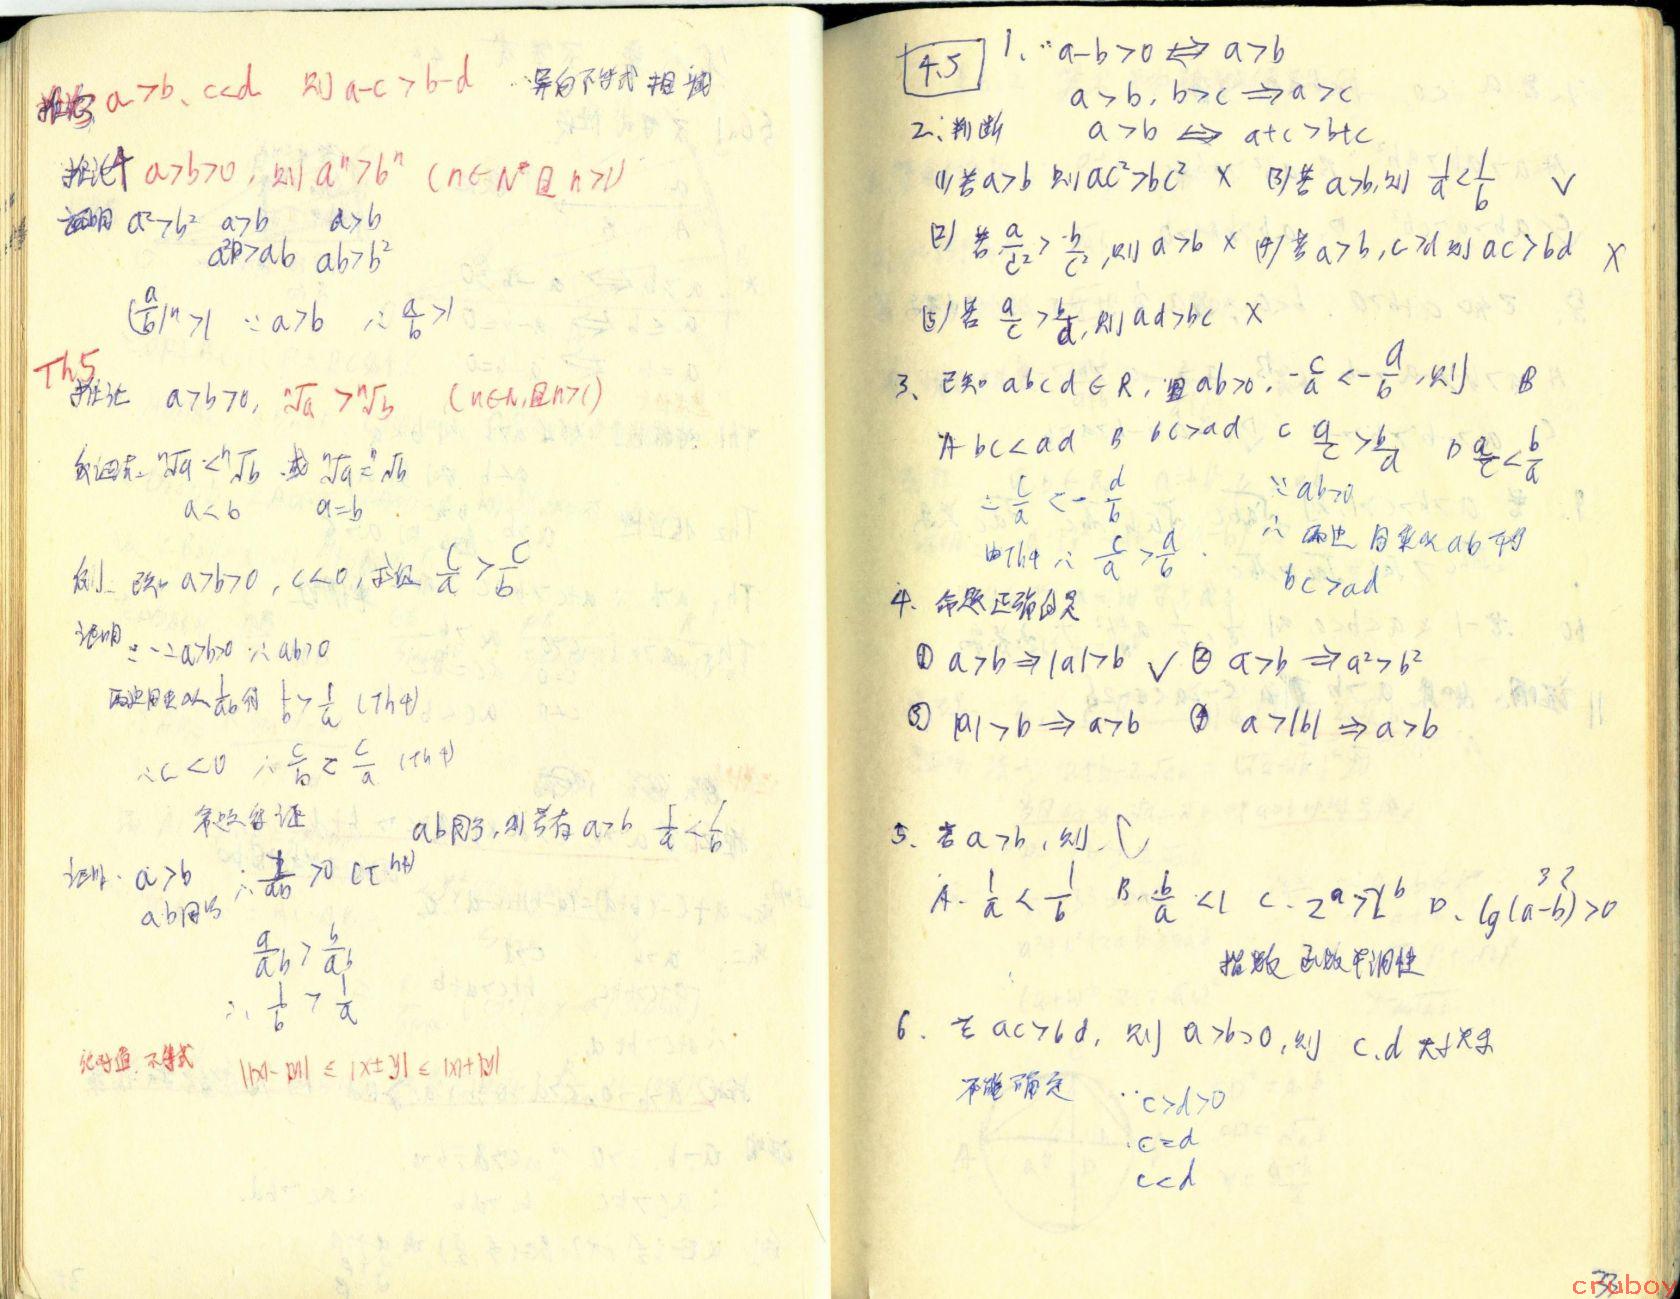 推论 a>b、c<d 则 a-c>b-d 异向不等式相减
推论4 a>b>0,则 aⁿ>bⁿ (n∈N* 且 n>1)
证明 a²>b² a>b a>b
a²>ab ab>b²
(a/b)ⁿ>1 ∵a>b ∴a/b>1
Th5
推论 a>b>0, ⁿ√a>ⁿ√b (n∈N,且n>1)
反证法 ⁿ√a<ⁿ√b 或 ⁿ√a=ⁿ√b
a<b a=b
例 已知 a>b>0, c<0, 求证 c/a > c/b
证明 ∵a>b>0 ∴ab>0
两边同乘以 1/ab 得 1/b > 1/a (Th4)
∵c<0 ∴ c/b < c/a (Th4)
ab同号,则若有 a>b 1/a < 1/b
证明. a>b ∴ 1/ab >0 (Th4)
ab同号
a/ab > b/ab
∴ 1/b > 1/a
绝对值 不等式 ||x|-|y|| ≤ |x±y| ≤ |x|+|y|
4.5 1. ∵ a-b>0 ⇔ a>b
a>b, b>c ⇒ a>c
2. 判断 a>b ⇔ a+c>b+c
(1) 若a>b 则ac²>bc² × (3) 若a>b,则 1/a<1/b √
(2) 若 a/c² > b/c²,则 a>b × (4) 若a>b, c>d 则 ac>bd ×
(5) 若 a/c > b/d,则 ad>bc ×
3. 已知 abcd∈R, 且ab>0, -c/a < -d/b,则 B
A bc<ad B bc>ad C a/c > b/d D a/c < b/d
∵ -c/a < -d/b ∵ab>0
由Th4 ∴ c/a > d/b ∴ 两边同乘以ab 得
bc>ad
4. 命题正确的是
① a>b ⇒ |a|>b √ ② a>b ⇒ a²>b²
③ |a|>b ⇒ a>b ④ a>|b| ⇒ a>b
5. 若a>b,则. C
3 2
A. 1/a < 1/b B. b/a <1 C. 2ᵃ>2ᵇ D. lg(a-b)>0
指数函数单调性
6. 若 ac>bd, 则 a>b>0,则 c.d 大小关系
不能确定 ∵ c>d>0
c=d
c<d
33
cruboy